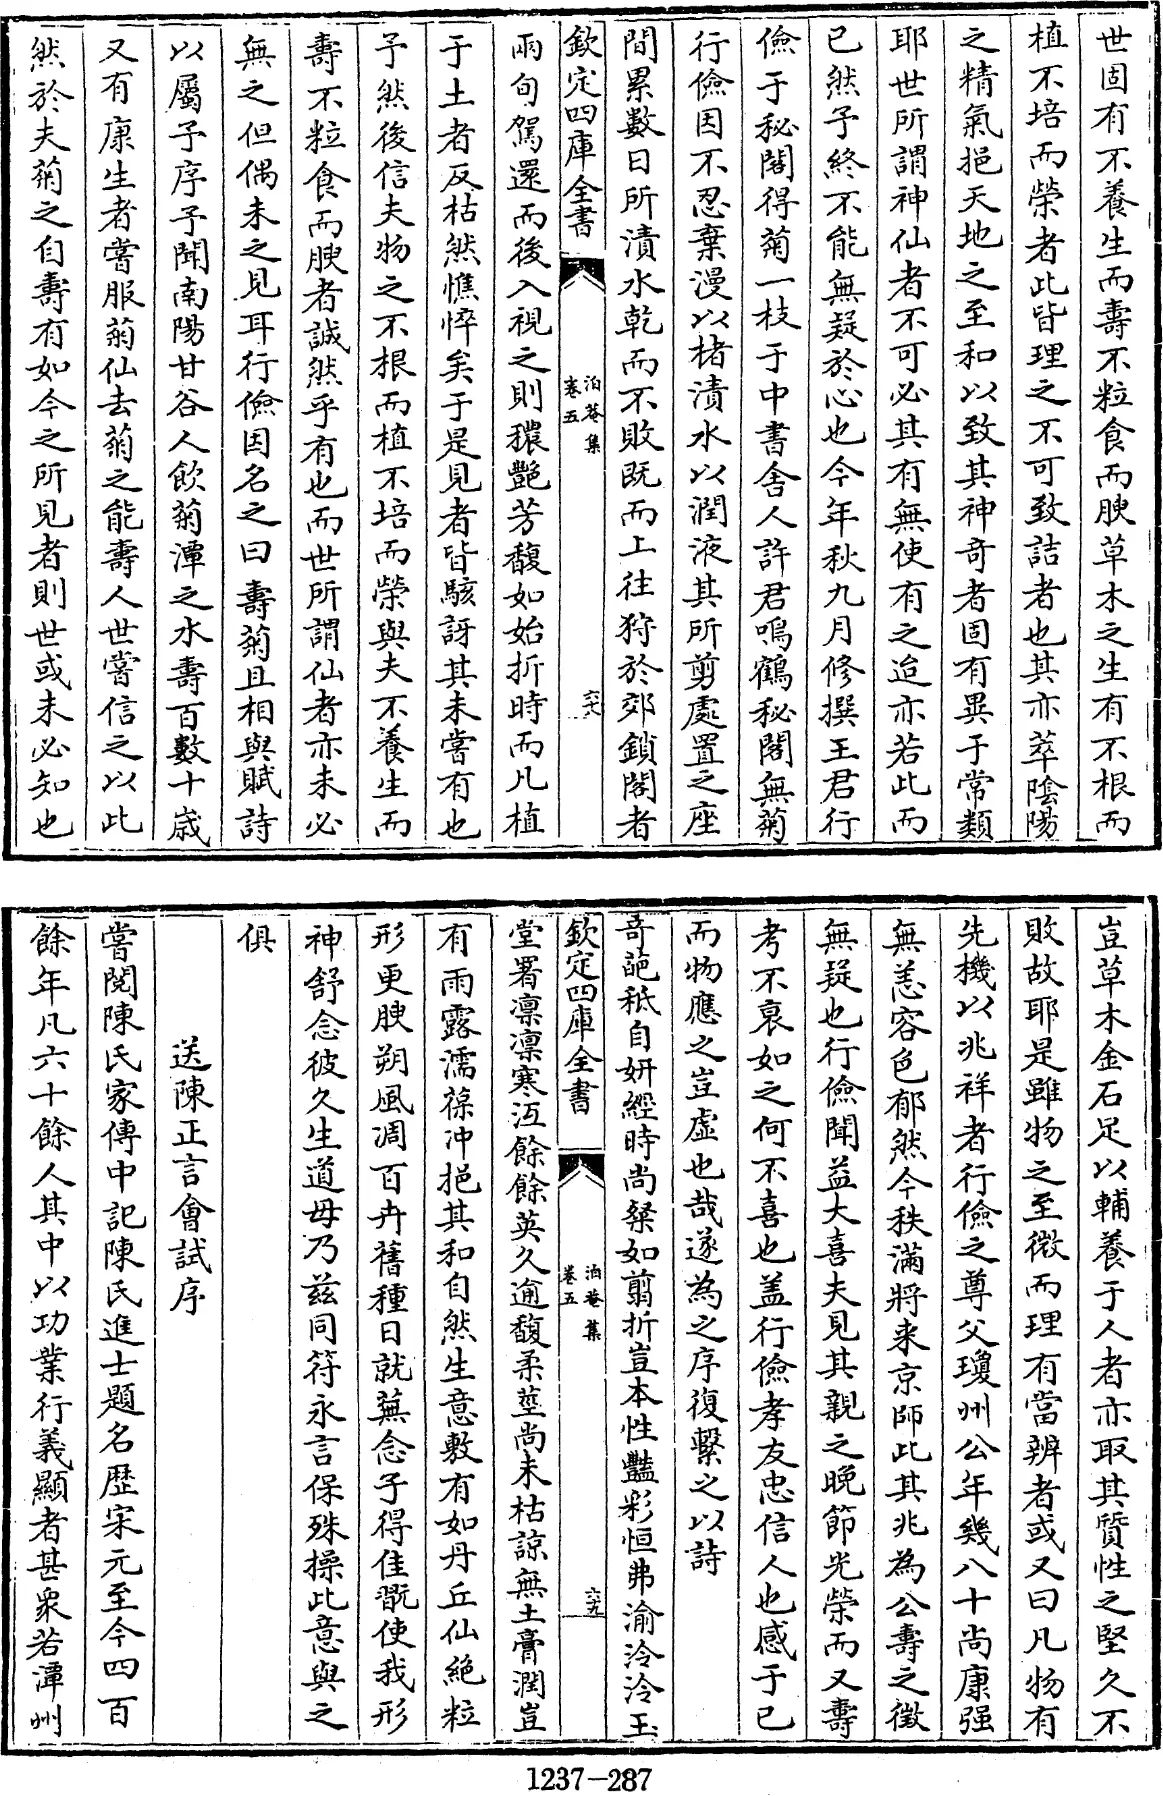 世固有不養生而壽不粒食而腴草木之生有不根而
植不培而榮者此皆理之不可致詰者也其亦萃陰陽
之精氣挹天地之至和以致其神竒者固有異于常類
耶世所謂神仙者不可必其有無使有之迨亦若此而
已然予終不能無疑於心也今年秋九月修撰王君行
儉于秘閣得菊一枝于中書舍人許君鳴鶴秘閣無菊
行儉因不忍棄漫以楮漬水以潤液其所剪處置之座
間累數日所漬水乾而不敗既而上往狩於郊鎖閣者
欽定四庫全書
泊菴集
卷五
六十八
兩旬駕還而後入視之則穠艷芳馥如始折時而凡植
于土者反枯然憔悴矣于是見者皆駭訝其未嘗有也
予然後信夫物之不根而植不培而榮與夫不養生而
壽不粒食而腴者誠然乎有也而世所謂仙者亦未必
無之但偶未之見耳行儉因名之曰壽菊且相與賦詩
以屬予序予聞南陽甘谷人飲菊潭之水壽百數十歲
又有康生者嘗服菊仙去菊之能壽人世嘗信之以此
然於夫菊之自壽有如今之所見者則世或未必知也
豈草木金石足以輔養于人者亦取其質性之堅久不
敗故耶是雖物之至微而理有當辨者或又曰凡物有
先機以兆祥者行儉之尊父瓊州公年幾八十尚康强
無恙容色郁然今秩滿將来京師此其兆為公壽之徵
無疑也行儉聞益大喜夫見其親之晚節光榮而又壽
考不衰如之何不喜也盖行儉孝友忠信人也感于已
而物應之豈虛也哉遂為之序復繫之以詩
竒葩秪自妍經時尚粲如翦折豈本性豔彩恒弗渝泠泠玉
欽定四庫全書
泊菴集
卷五
六十九
堂署凜凜寒沍餘餘英久逾馥柔莖尚未枯諒無土膏潤豈
有雨露濡葆沖挹其和自然生意敷有如丹丘仙絶粒
形更腴朔風凋百卉舊種日就蕪念子得佳翫使我形
神舒念彼久生道毋乃兹同符永言保殊操此意與之
俱
送陳正言會試序
嘗閱陳氏家傳中記陳氏進士題名歷宋元至今四百
餘年凡六十餘人其中以功業行義顯者甚衆若潭州
1237-287